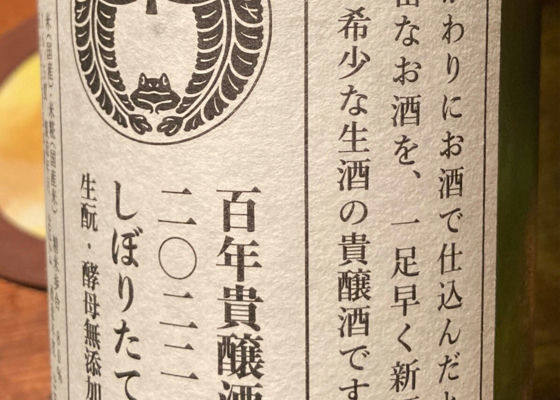 わりにお酒で仕込んだ
なお酒を、一足早く新
希少な生酒の貴醸酒です
百年貴醸酒
二〇二二
しぼりたて
生酛・酵母無添加
米(国産)・米糀(国産米) 精米歩合